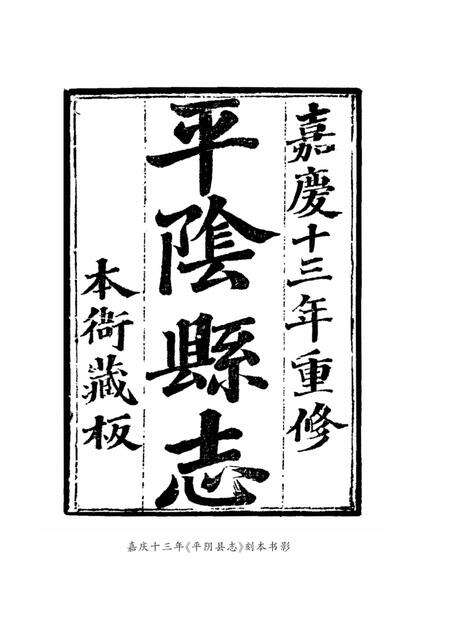 嘉慶十三年重修
平陰縣志
本衙藏板
嘉庆十三年《平阴县志》刻本书影